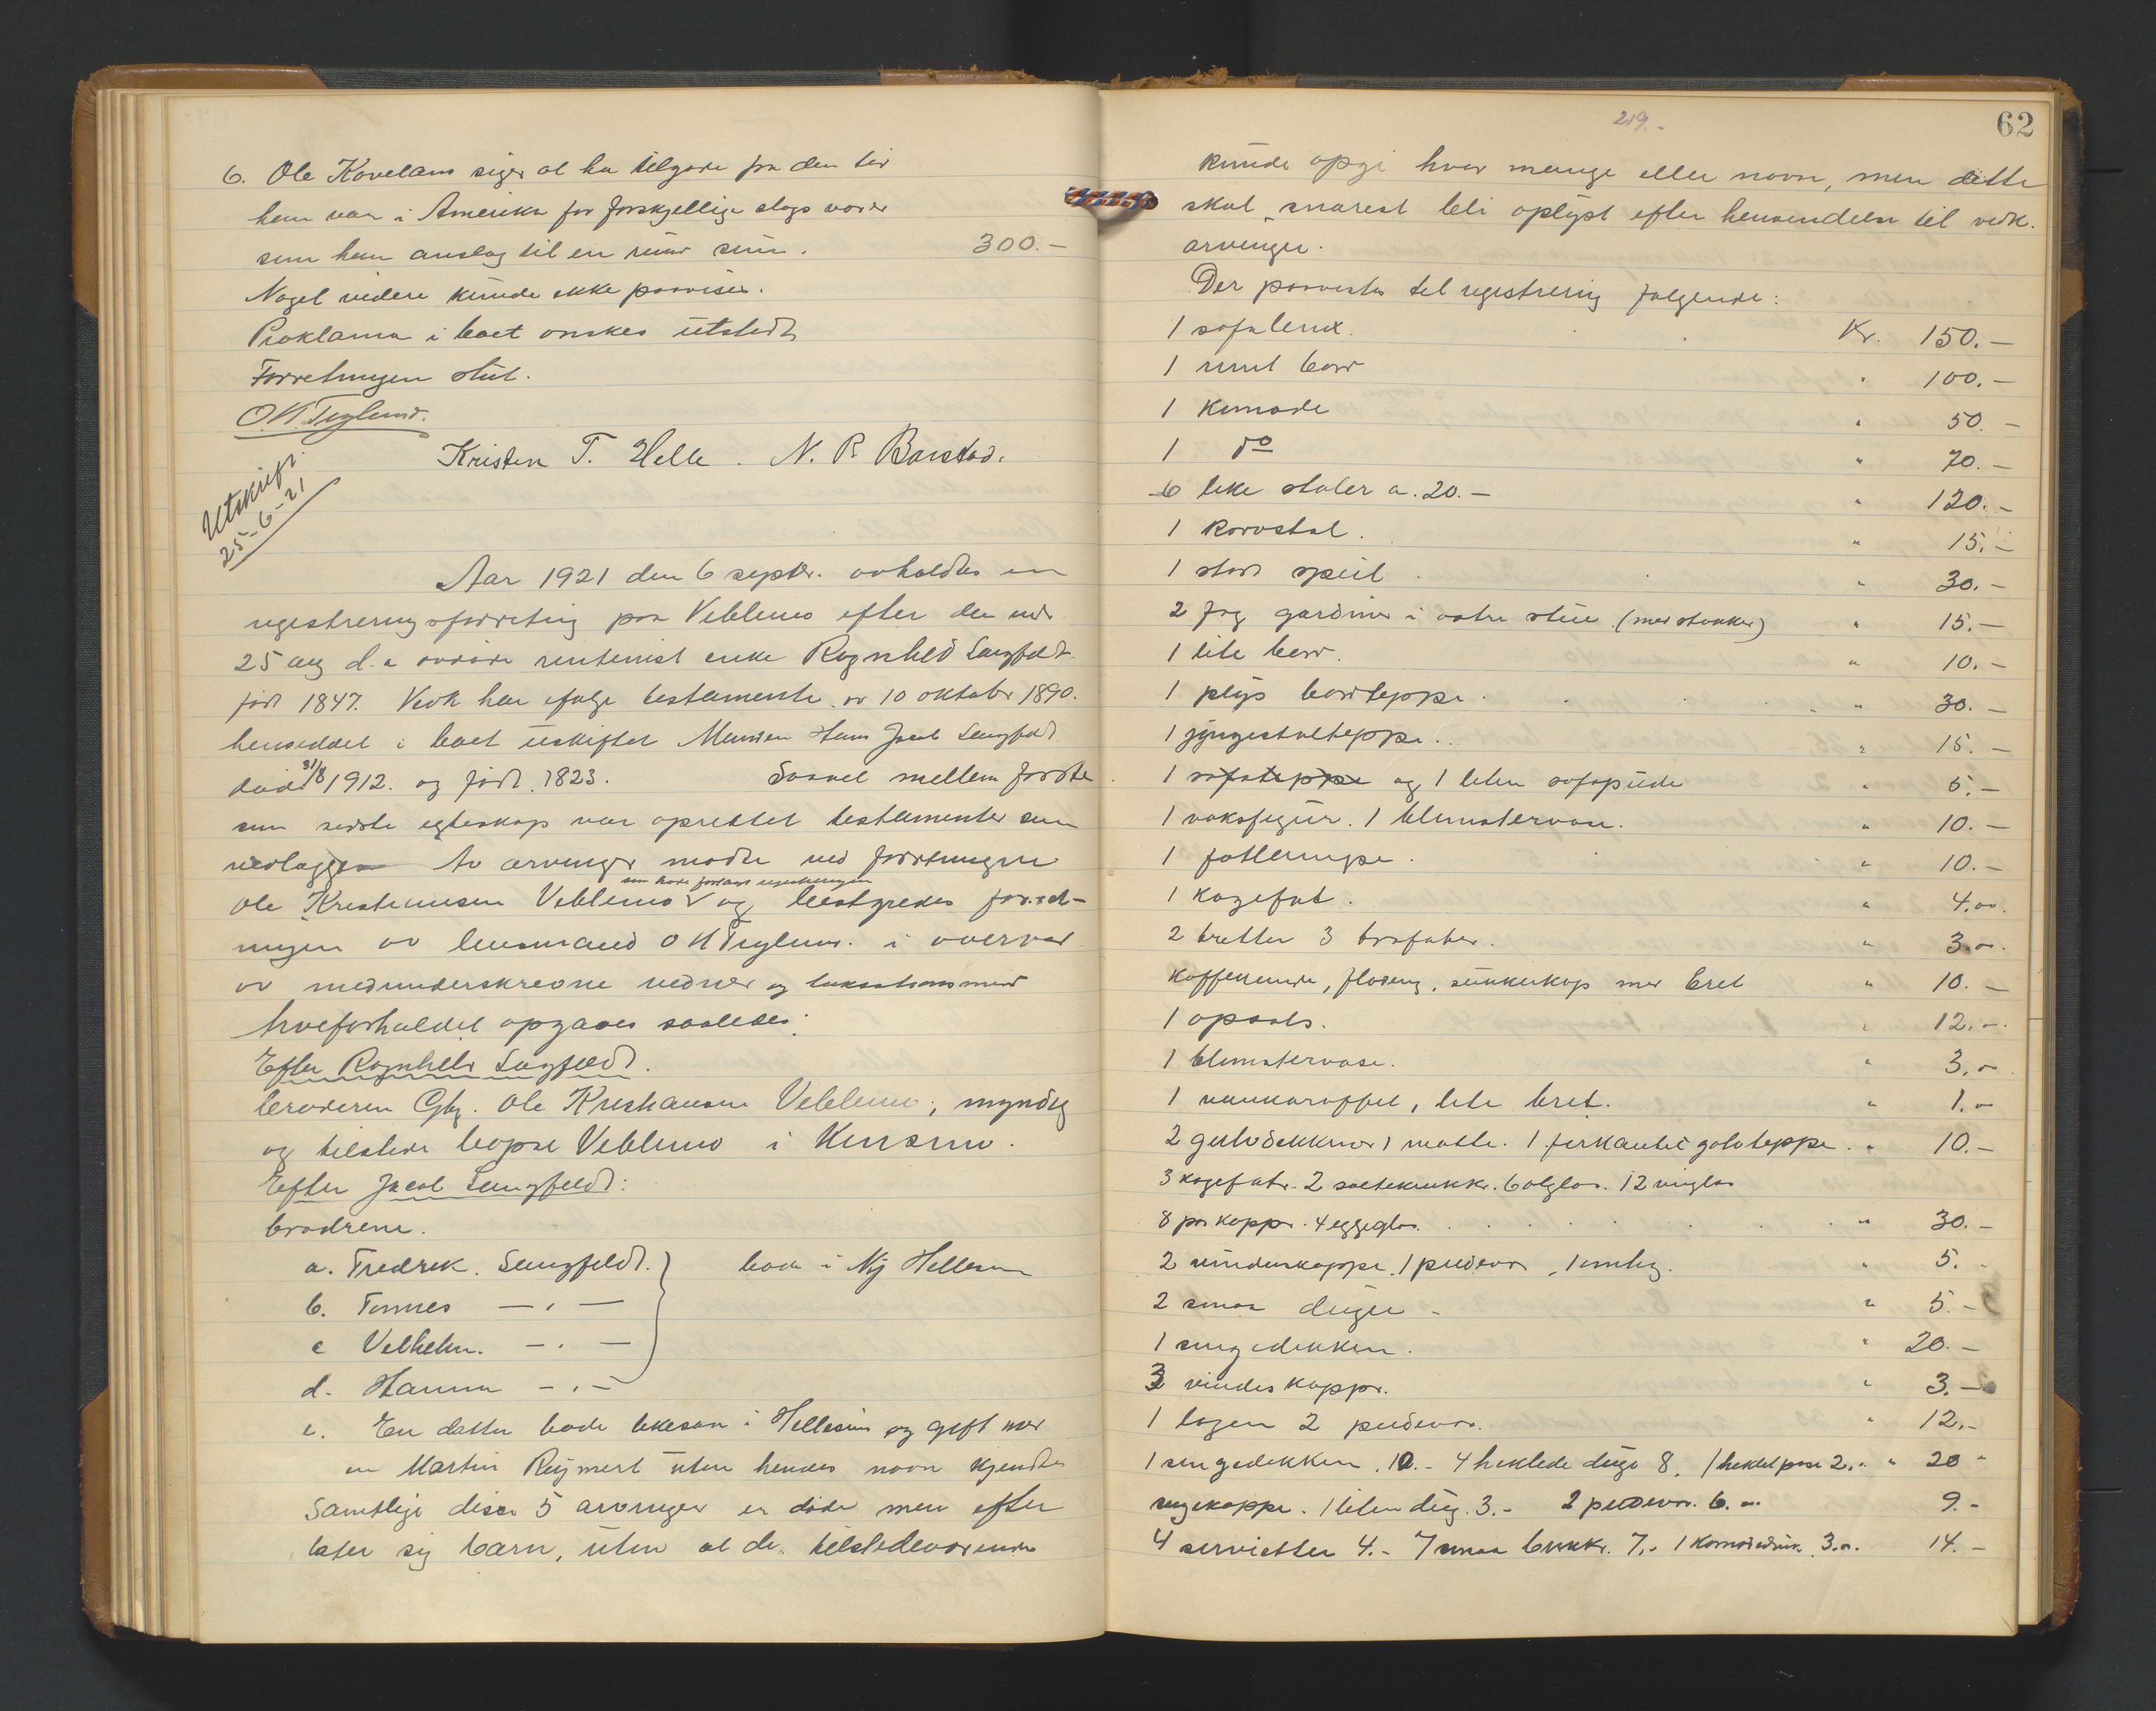 6. Ole Kovelans siger at ha tilgode fra den tid
han var i Amerika for forskjellige slags varer
som han anslog til en rund sum. 300.-
Noget videre kunde ikke paavises.
Proklama i boet ønskes utstedt
Forretningen slut.
O.N. Teglund.
Kristen T. Helle. N. R. Barstad.
Utskrift
25-6-21
Aar 1921 den 6 septbr. avholdtes en
registreringsforretning paa Veblemo efter den under
25 aug d.a avdøde rentenist enke Ragnhild Langfeldt
født 1847. Vedk har ifølge testamente av 10 oktober 1890.
hensiddet i boet uskiftet Manden Hans Jacob Langfeldt
død 31/8 1912. og født 1823. Saavel mellem første
som sidste egteskap var oprettet testamenter som
vedlægges Av arvinger møtte ved forretningen
Ole Kristensen Veblemo og bestyredes forret-
ningen av lensmand O N Teglund. i overvær
av medunderskrevne vidner og takstmænd
Arveforholdet opgaves saaledes:
Efter Ragnhild Langfeldt.
broderen Gbr. Ole Kristiansen Veblemo, myndig
og tilstede bopæl Veblemo i
Efter Jacob Langfeldt:
brødrene.
a. Fredrik Langfeldt. bode i Ny Hellesun
b. Tønnes — " —
c Vilhelm. — " —
d. Hanna — " —
e. En datter bode likesaa i Hellesun og gift med
en Martin Reymert uten hendes navn kjendtes
Samtlige disse 5 arvinger er døde men efter
later sig barn, uten at de tilstedeværende
219.-
62
kunde opgi hvor mange eller navn, men dette
skal snarest bli oplyst efter henvendelse til vedk.
arvinger.
Der paavistes til registrering følgende:
1 sofa Kr. 150.-
1 rundt bord " 100.-
1 Komode " 50.-
1 do " 70.-
6 like stoler a. 20.- " 120.-
1 Korvstol. " 15.-
1 stort speil " 30.-
2 fag gardiner i østre stue (med stokker) " 15.-
1 lite bord. " 10.-
1 plys bordteppe. " 30.-
1 gyngestolteppe. " 15.-
1 sofateppe og 1 liten sofapude " 5.-
1 voksfigur. 1 blomstervase. " 10.-
1 fotlampe. " 10.-
1 kagefat. " 4.00.
2 bretter 3 træfater. " 3.00.
Kaffekande, fløtemug, sukkerkop med bret " 10.-
1 opsats. " 12.-
1 blomstervase. " 3.00
1 vankaraffel, lite bret. " 1.00
2 gulvdekkener 1 matte. 1 firkantet golvteppe. " 10.-
3 kagefate. 2 saltekrukker. 6 ølglas. 12 vinglas
8 par kopper. 4 eggeglas. " 30.-
2 vinduskapper. 1 pudevar, 1 omheng. " 5.-
2 smaa duger " 5.-
1 sengedekken. " 20.-
3 vindus kapper. " 3.-
1 lagen 2 pudevar. " 12.-
1 sengedekken. 10.- 4 heklede duge 8. 1 heklet pose 2.- " 20
sengekappe. 1 liten dug. 3.- 2 pudevar. 6.00 9.-
4 servietter 4.- 7 smaa 7.- 1 komodedug 3.00. 14.-